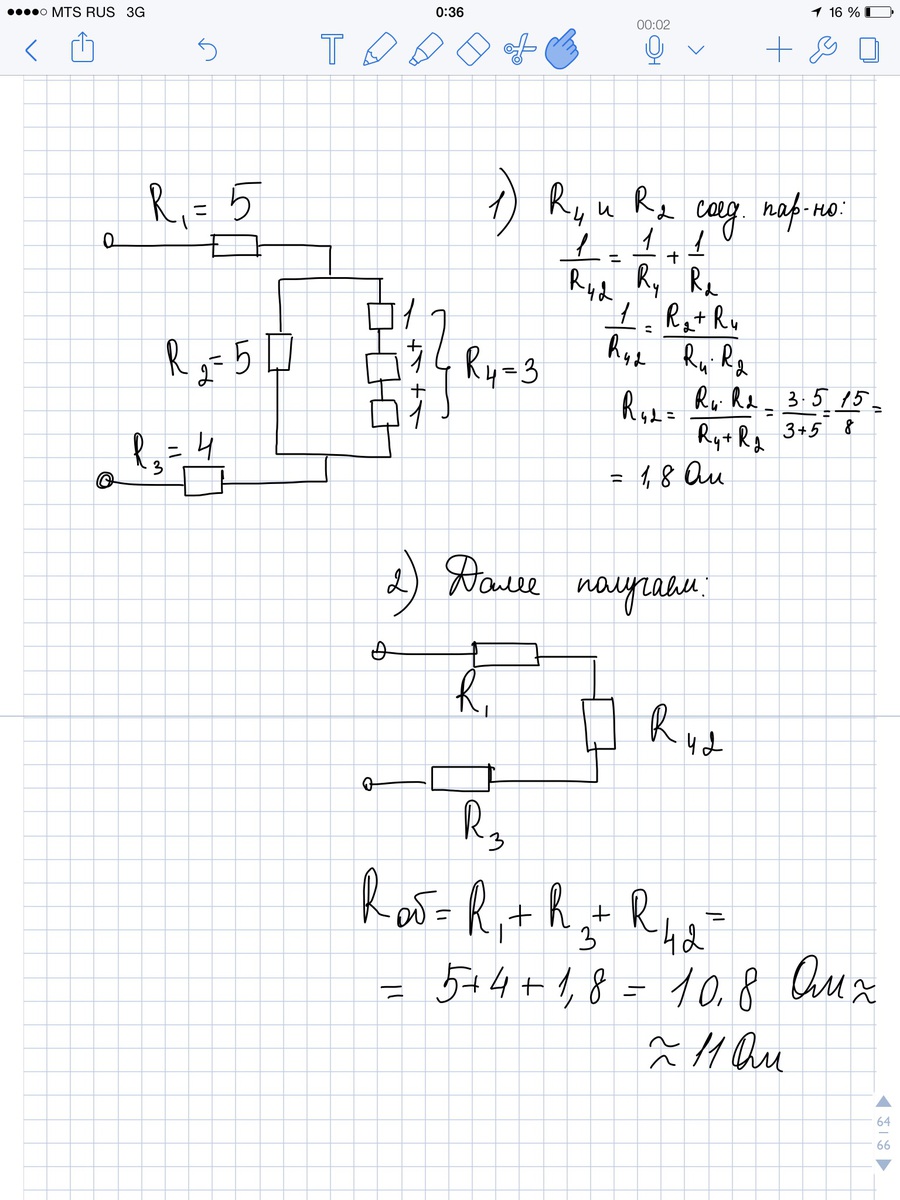 MTS RUS 3G 0:36 16 %
00:02
T
R₁ = 5
R₂ = 5
1
+
1
+
1
R₄ = 3
R₃ = 4
1) R₄ и R₂ соед. пар-но:
1/R₄₂ = 1/R₄ + 1/R₂
1/R₄₂ = (R₂ + R₄)/(R₄ · R₂)
R₄₂ = (R₄ · R₂)/(R₄ + R₂) = (3 · 5)/(3 + 5) = 15/8 =
= 1,8 Ом
2) Далее получаем:
R₁
R₄₂
R₃
Rоб = R₁ + R₃ + R₄₂ =
= 5 + 4 + 1,8 = 10,8 Ом ≈
≈ 11 Ом
64
66